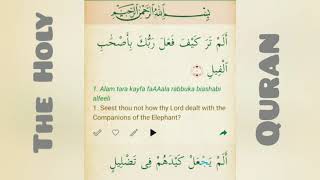 The Holy
بِسْمِ اللَّهِ الرَّحْمَٰنِ الرَّحِيمِ
أَلَمْ تَرَ كَيْفَ فَعَلَ رَبُّكَ بِأَصْحَٰبِ
ٱلْفِيلِ
1. Alam tara kayfa faAAala rabbuka biashabi
alfeeli
1. Seest thou not how thy Lord dealt with the
Companions of the Elephant?
أَلَمْ يَجْعَلْ كَيْدَهُمْ فِى تَضْلِيلٍ
QURAN